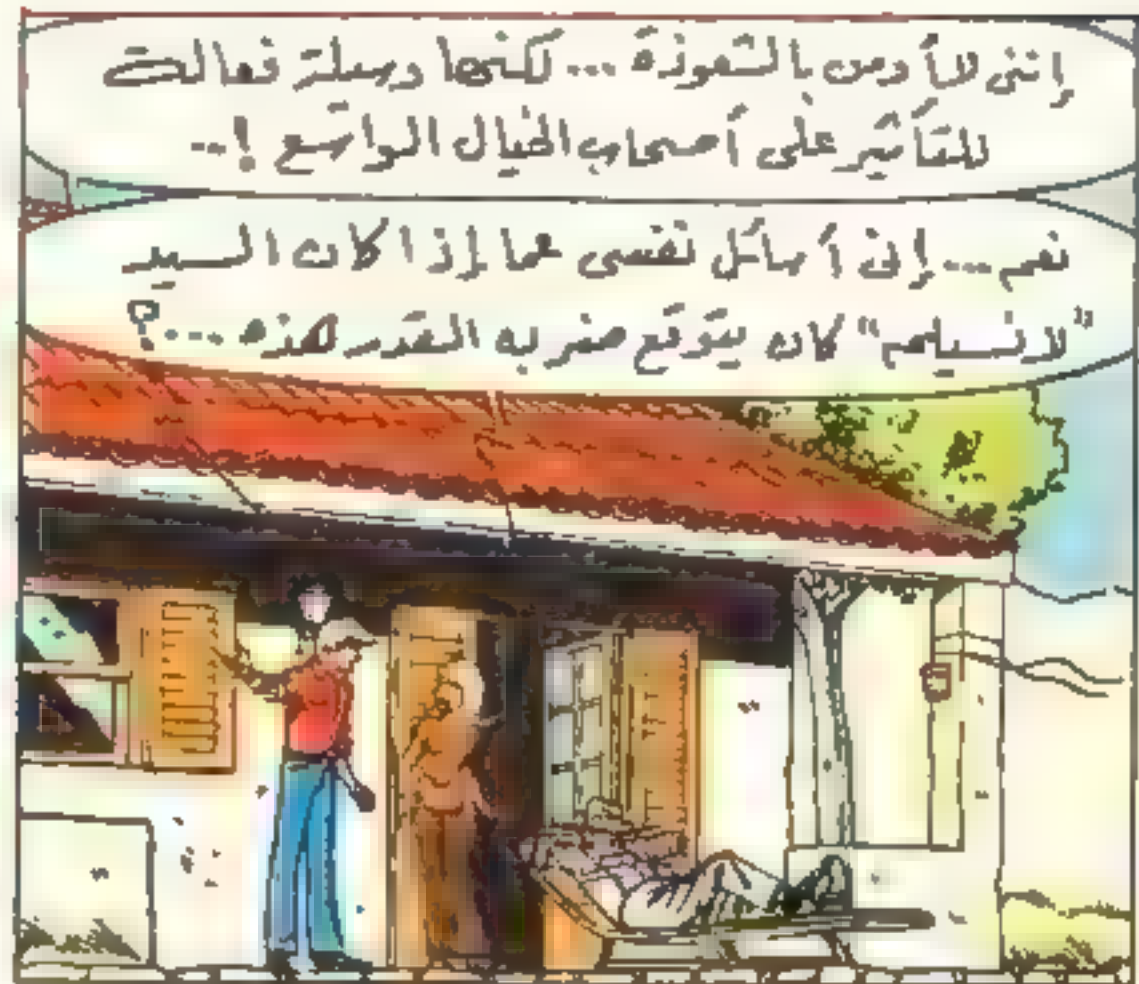 إننى لا أومن بالشعوذة ... لكنها وسيلة فعالة
للتأثير على أصحاب الخيال الواسع !..
نعم ... إنى أسائل نفسى عما إذا كان السيد
"لانسيلم" كان يتوقع ضربة القدر هذه ...؟